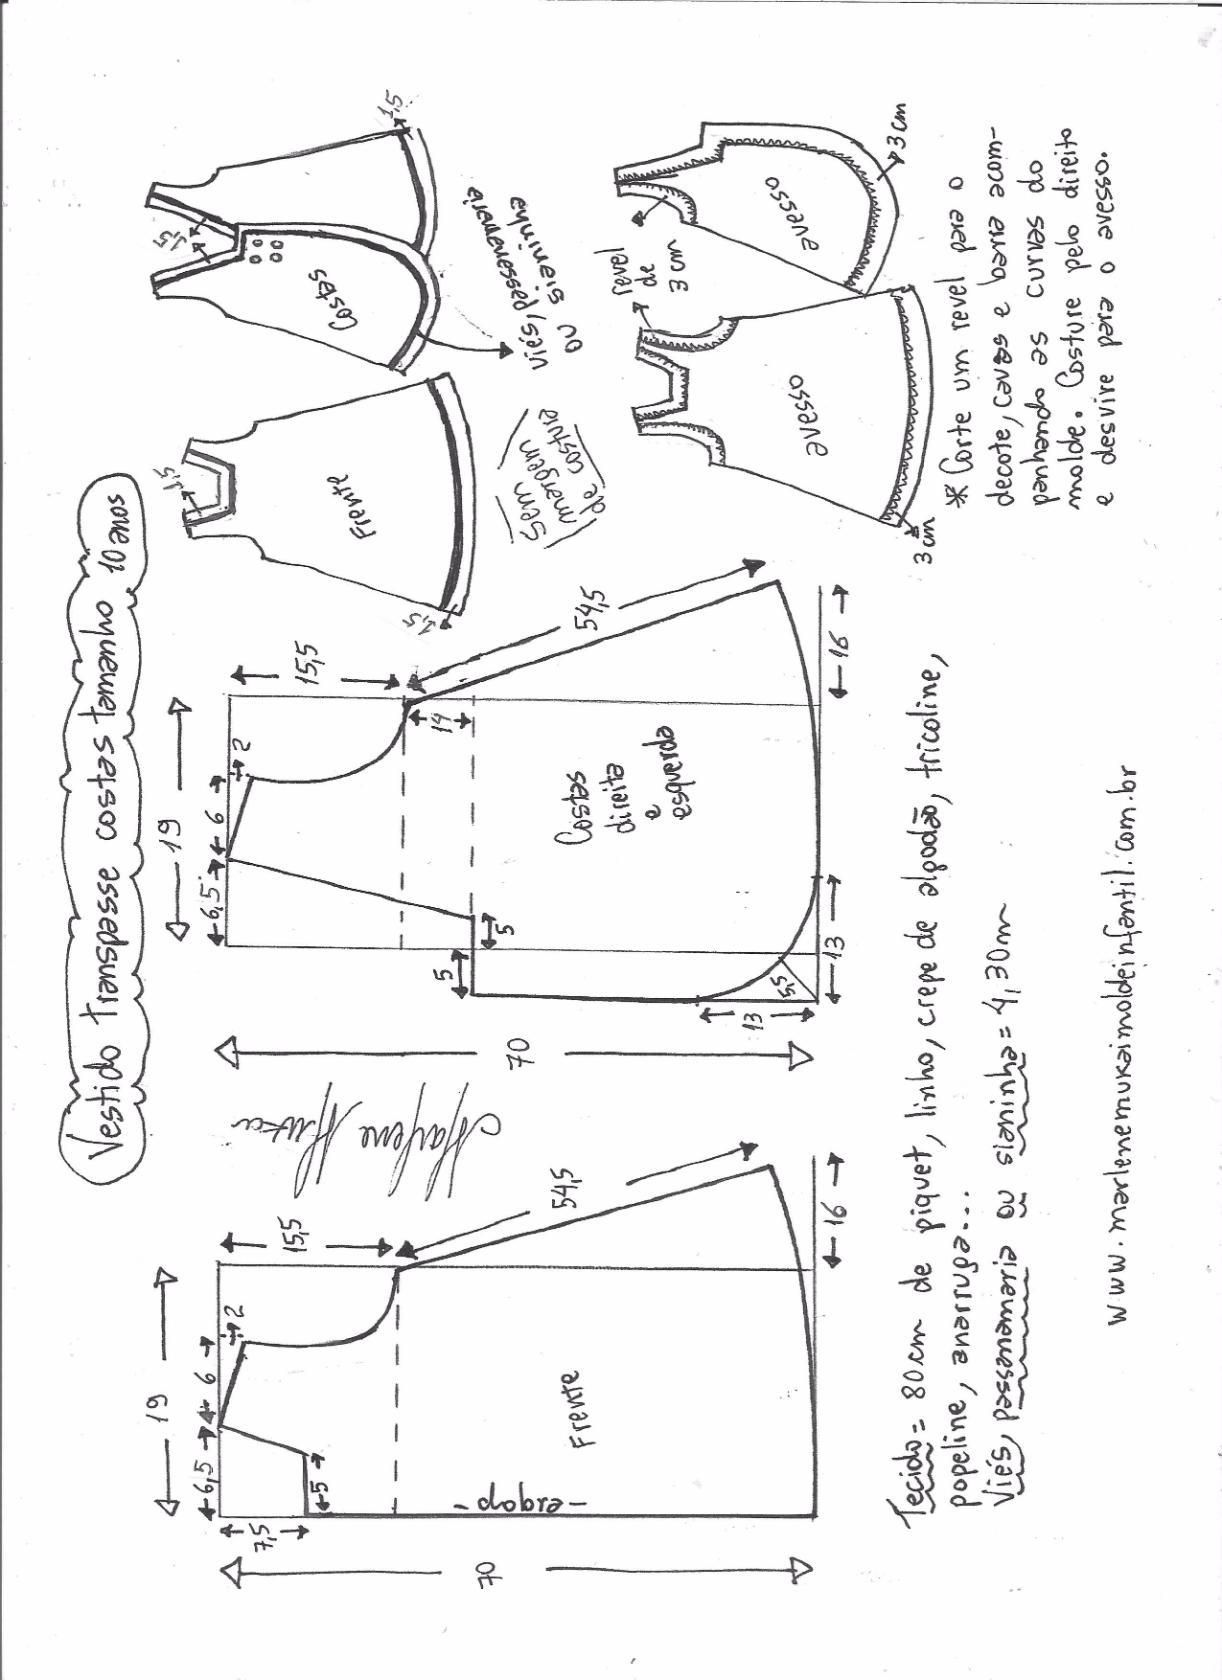 Vestido transpasse costas tamanho 10 anos
19
6,5
6
2
15,5
7,5
5
70
- dobra -
Frente
54,5
16
Marlene Mukai
19
6,5
6
2
15,5
14
5
5
70
Costas
direita
e
esquerda
54,5
16
13
13
5,5
1,5
Frente
1,5
sem
margem
de costura
1,5
Costas
1,5
viés, passamanaria
ou
sianinha
revel
de
3 cm
avesso
3 cm
avesso
3 cm
* Corte um revel para o
decote, cavas e barra acom-
panhando as curvas do
molde. Costure pelo direito
e desvire para o avesso.
Tecido = 80cm de piquet, linho, crepe de algodão, tricoline,
popeline, anarruga...
Viés, passamanaria ou sianinha = 4,30m
www.marlenemukaimoldeinfantil.com.br